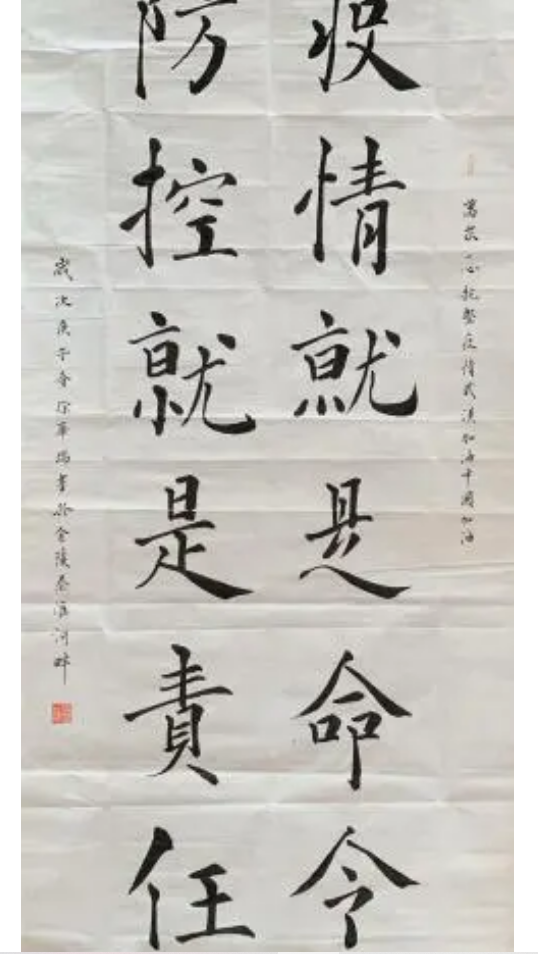 萬众一心抗擊疫情武漢加油中國加油
疫情就是命令
防控就是責任
歲次庚子春徐華瑞書於金陵秦淮河畔